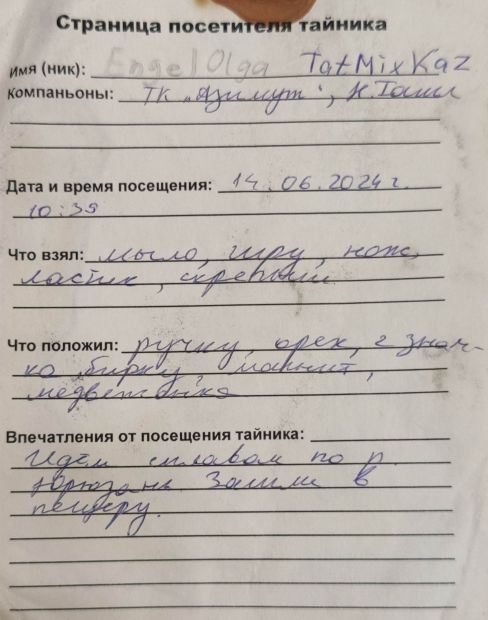 Страница посетителя тайника
Имя (ник): Engel Olga TatMixKaz
Компаньоны: ТК "Азимут", Н.
Дата и время посещения: 14.06.2024г.
10:39
Что взял: мыло, игру, нож,
ластик, скрепыши
Что положил: ручку, орех, 2 знач-
ка, бирку, магнит,
медвежонка
Впечатления от посещения тайника:
Идём сплавом по р.
Юрюзань Зашли в
пещеру.